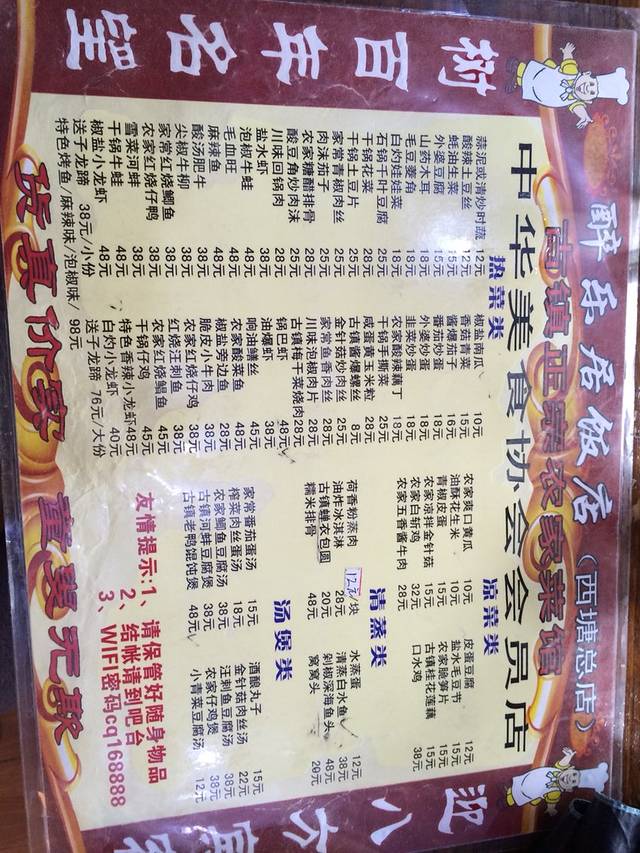 醉乐居饭店（西塘总店）
古镇正宗农家菜馆
中华美食协会会员店
树百年名望
迎八方宾客
货真价实 童叟无欺
热菜类
蒜泥或清炒时蔬 12元
酸辣土豆丝 12元
蚝油生菜 15元
外婆豆腐 15元
山药木耳 18元
毛豆菱角 18元
白灼娃娃菜 18元
石锅千叶豆腐 25元
干锅花菜 25元
干锅土豆片 25元
家常青椒肉丝 25元
肉沫茄子 25元
农家糖醋排骨 28元
酸豆角炒肉沫 25元
川味回锅肉 28元
盐水虾 38元
泡椒牛蛙 48元
毛血旺 48元
麻辣鱼 38元
酸汤肥牛 48元
尖椒牛柳 38元
家常红烧鲫鱼 38元
农家红烧仔鸭 38元
雪菜河蚌 38元
干锅牛蛙 48元
椒盐小龙虾 48元
送子龙蹄 38元/小份
特色烤鱼/麻辣味/泡椒味/ 98元
椒盐南瓜 10元
香菇青菜 15元
酱爆茄子 16元
番茄炒蛋 18元
外婆炒蛋 18元
韭菜炒蛋 18元
农家酸辣藕丁 18元
干锅手撕菜 25元
咸蛋黄玉米粒 28元
古镇酱爆螺丝 8元
金针菇炒肉丝 25元
家常鱼香肉丝 25元
川味泡椒肉片 28元
古镇梅干菜烧肉 28元
锅巴虾 48元
油爆虾 38元
响油鳝丝 45元
农家酸菜鱼 48元
椒盐旁边鱼 28元
脆皮小牛肉 38元
农家红烧仔鸡 38元
红烧汪刺鱼 38元
农家红烧鳊鱼 45元
干锅仔鸡 45元
特色香辣小龙虾 48元
白灼小龙虾 40元
送子龙蹄 76元/大份
凉菜类
农家爽口黄瓜 10元
油酥花生米 10元
青椒皮蛋 15元
农家凉拌金针菇 15元
农家白斩鸡 32元
农家五香酱牛肉 28元
皮蛋豆腐 12元
盐水毛豆节 15元
农家脆笋片 15元
古镇桂花莲藕 15元
口水鸡 38元
清蒸类
荷香粉蒸肉 12元/块
油炸冰淇淋 28元
古镇蝉衣包圆 20元
糯米排骨 48元
水蒸蛋 12元
清蒸白水鱼 38元
剁椒深海鱼头 48元
窝窝头 28元
汤煲类
家常番茄蛋汤 15元
榨菜肉丝蛋汤 18元
农家鲫鱼豆腐汤 38元
古镇河蚌豆腐煲 38元
古镇老鸭馄饨煲 48元
酒酿丸子 15元
金针菇肉丝汤 22元
汪刺鱼豆腐汤 38元
农家仔鸡煲 38元
小青菜豆腐汤 12元
友情提示：1、请保管好随身物品
2、结帐请到吧台
3、WIFI密码cq168888